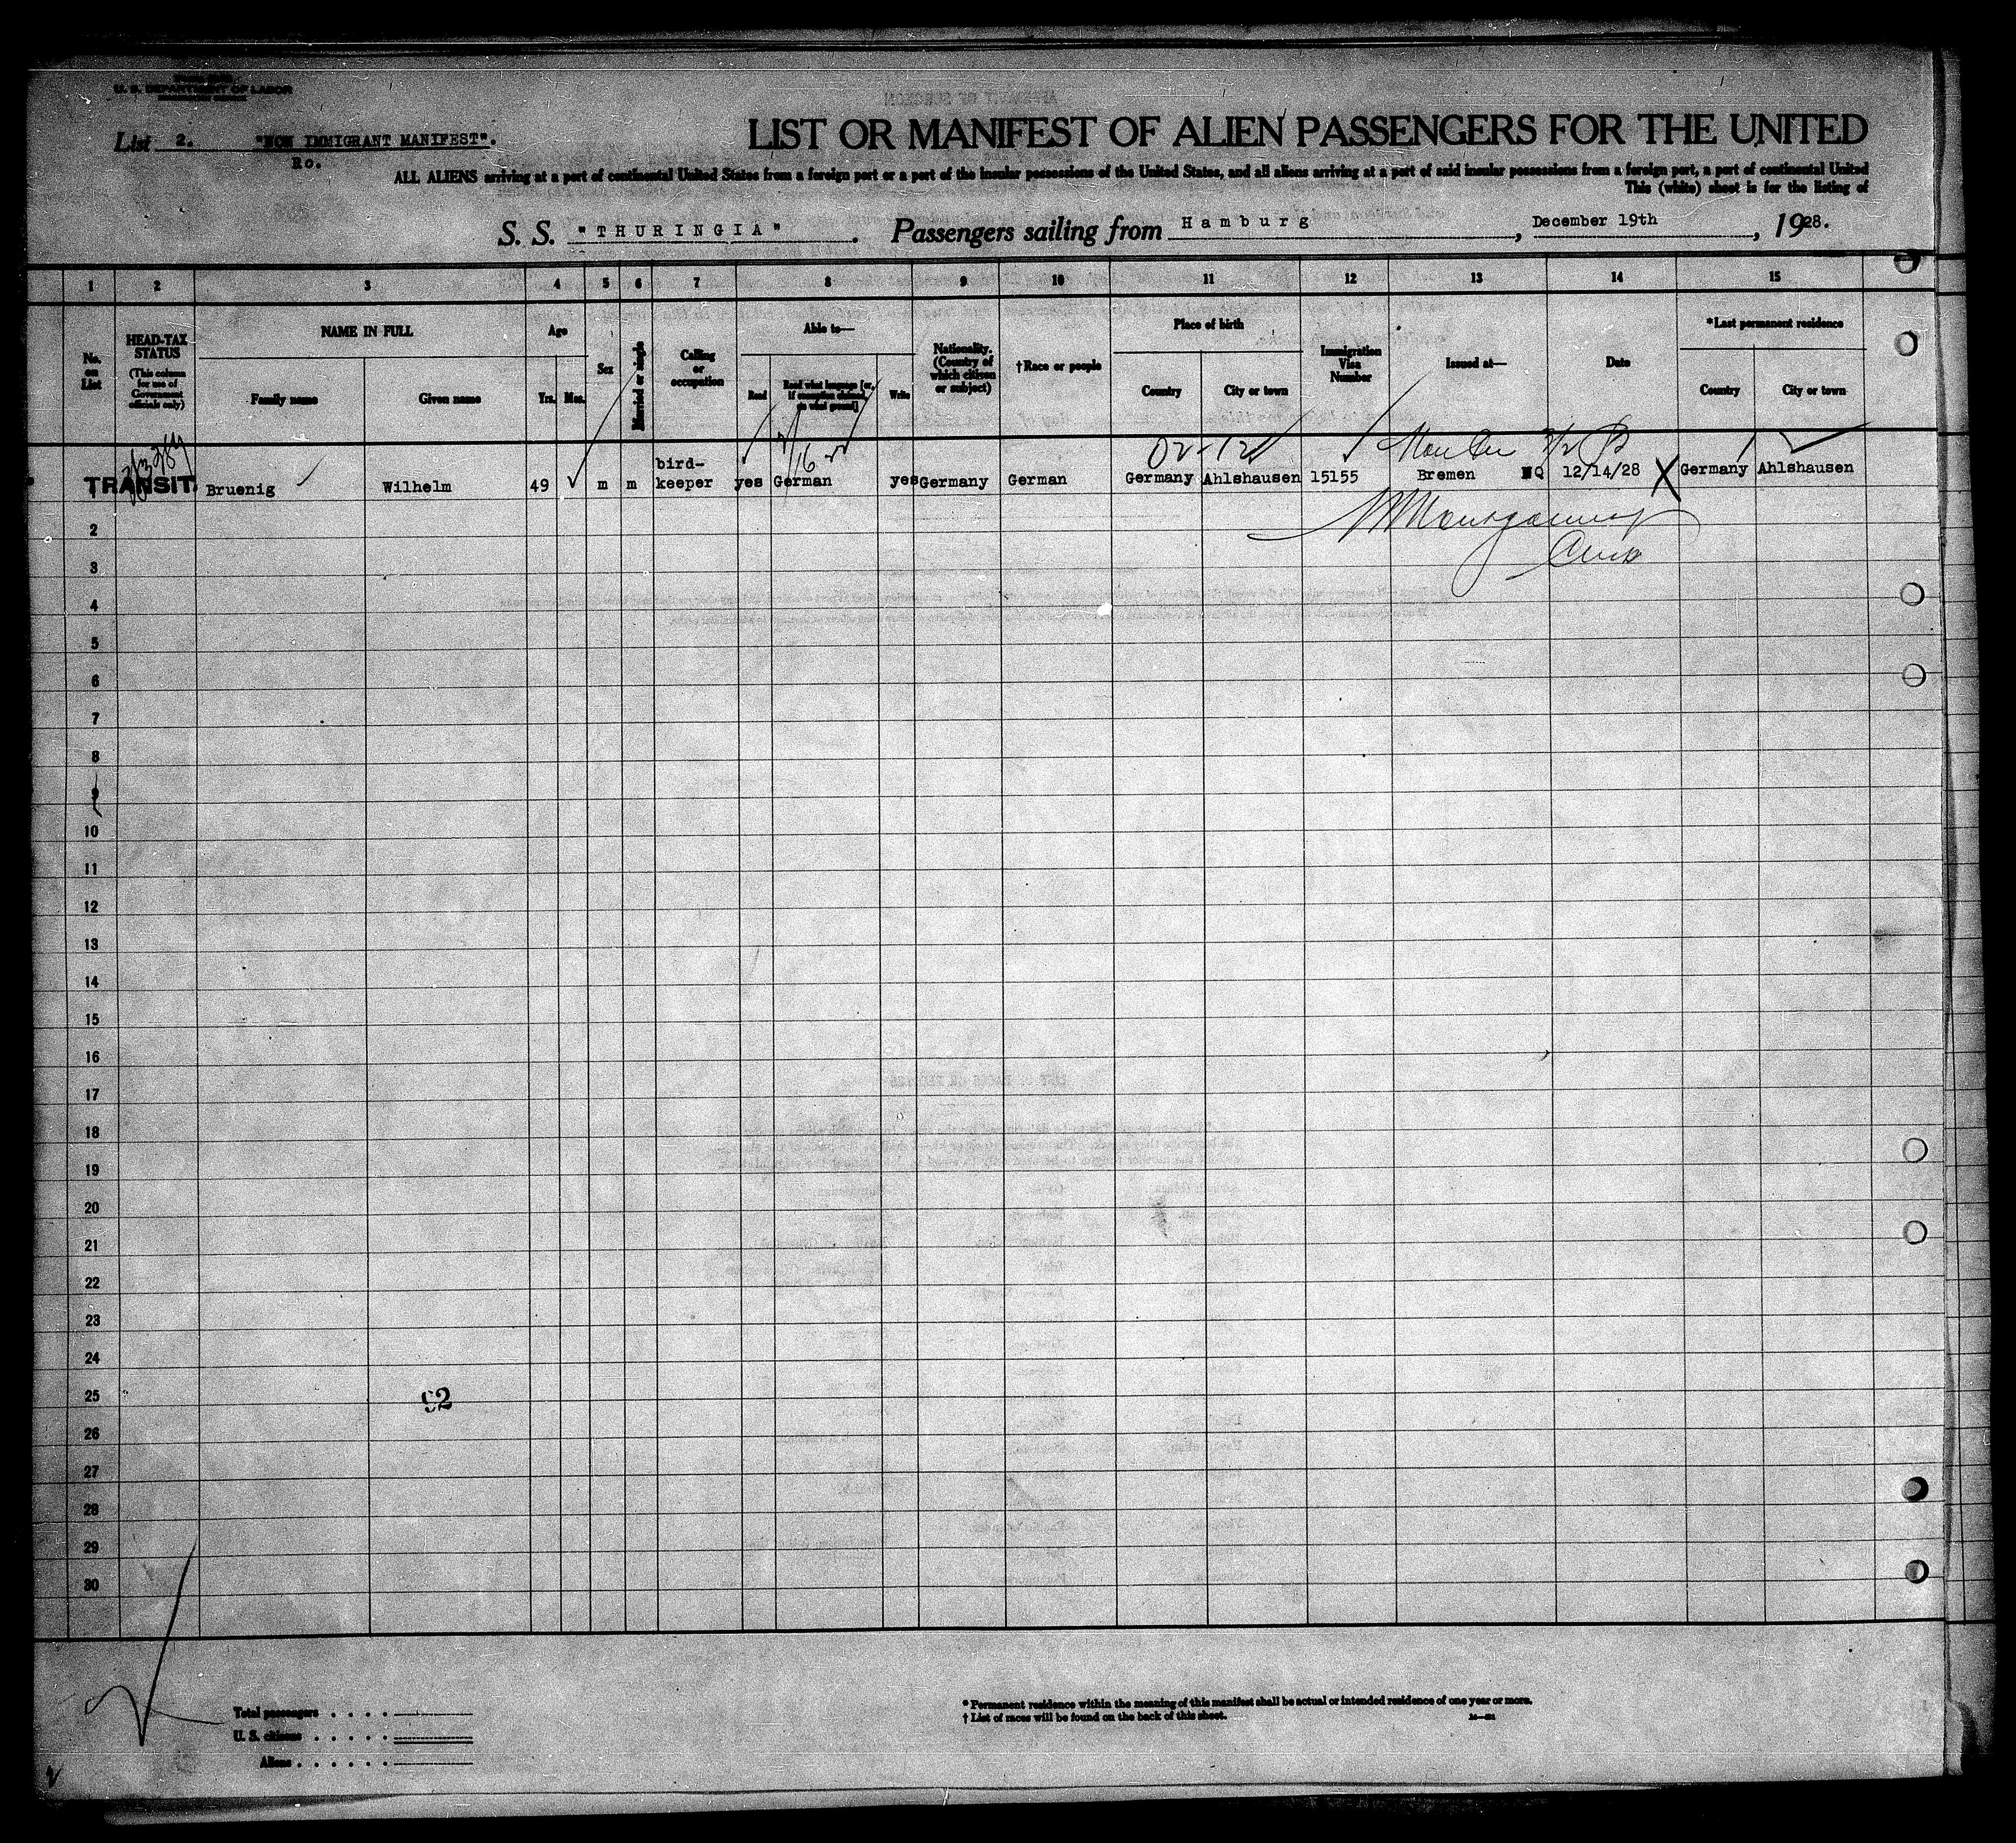 U. S. DEPARTMENT OF LABOR
List 2. "NON IMMIGRANT MANIFEST".
Ro.
LIST OR MANIFEST OF ALIEN PASSENGERS FOR THE UNITED
ALL ALIENS arriving at a port of continental United States from a foreign port or a port of the insular possessions of the United States, and all aliens arriving at a port of said insular possessions from a foreign port, a port of continental United
This (white) sheet is for the listing of
S. S. "THURINGIA". Passengers sailing from Hamburg, December 19th, 1928.
1 2 3 4 5 6 7 8 9 10 11 12 13 14 15
No. on List
HEAD-TAX STATUS
(This column for use of Government officials only)
NAME IN FULL
Family name
Given name
Age
Yrs. Mos.
Sex
Married or single
Calling or occupation
Able to—
Read
Read what language [or, if exemption claimed, on what ground]
Write
Nationality. (Country of which citizen or subject)
†Race or people
Place of birth
Country
City or town
Immigration Visa Number
Issued at—
Date
*Last permanent residence
Country
City or town
02-12
16
TRANSIT Bruenig Wilhelm 49 m m bird-keeper yes German yes Germany German Germany Ahlshausen 15155 Bremen NQ 12/14/28 X Germany Ahlshausen
2
3
4
5
6
7
8
9
10
11
12
13
14
15
16
17
18
19
20
21
22
23
24
25
92
26
27
28
29
30
Total passengers
U. S. citizens
Aliens
* Permanent residence within the meaning of this manifest shall be actual or intended residence of one year or more.
† List of races will be found on the back of this sheet.